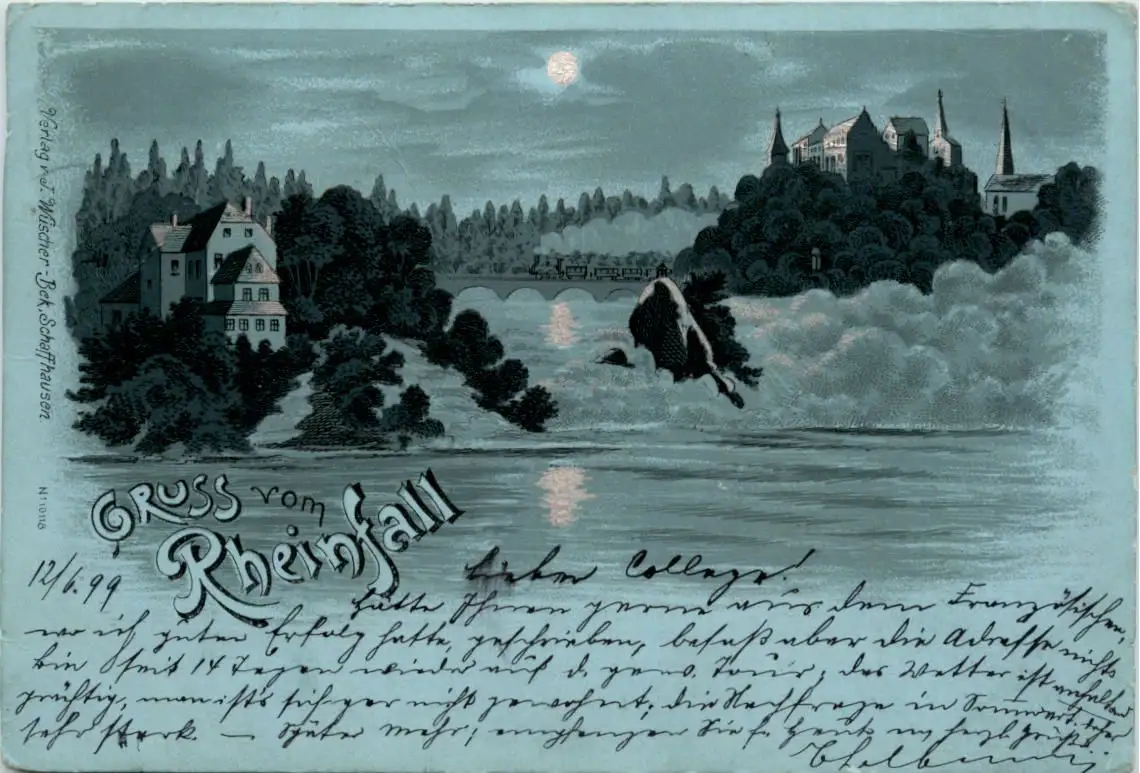 Verlag v. J. Wüscher-Bek, Schaffhausen
No 10118
Gruss vom
Rheinfall
12/6.99
Lieber College!
Hätte Ihnen gerne aus dem Französischen,
wo ich guten Erfolg hatte, geschrieben, besaß aber die Adresse nicht.
Bin seit 14 Tagen wieder auf d. Tour; das Wetter ist
prächtig, man ist's sich gar nicht gewohnt; die Nachfrage in
sehr stark. — Später mehr; empfangen Sie f. heute